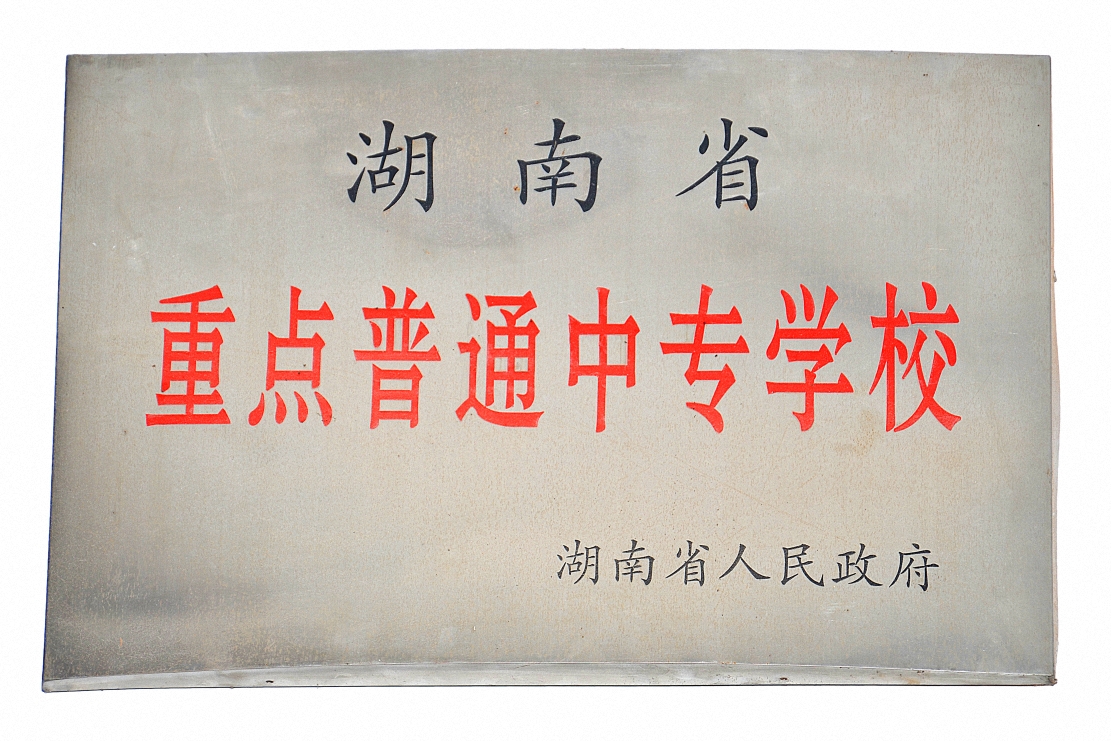 湖南省
重点普通中专学校
湖南省人民政府